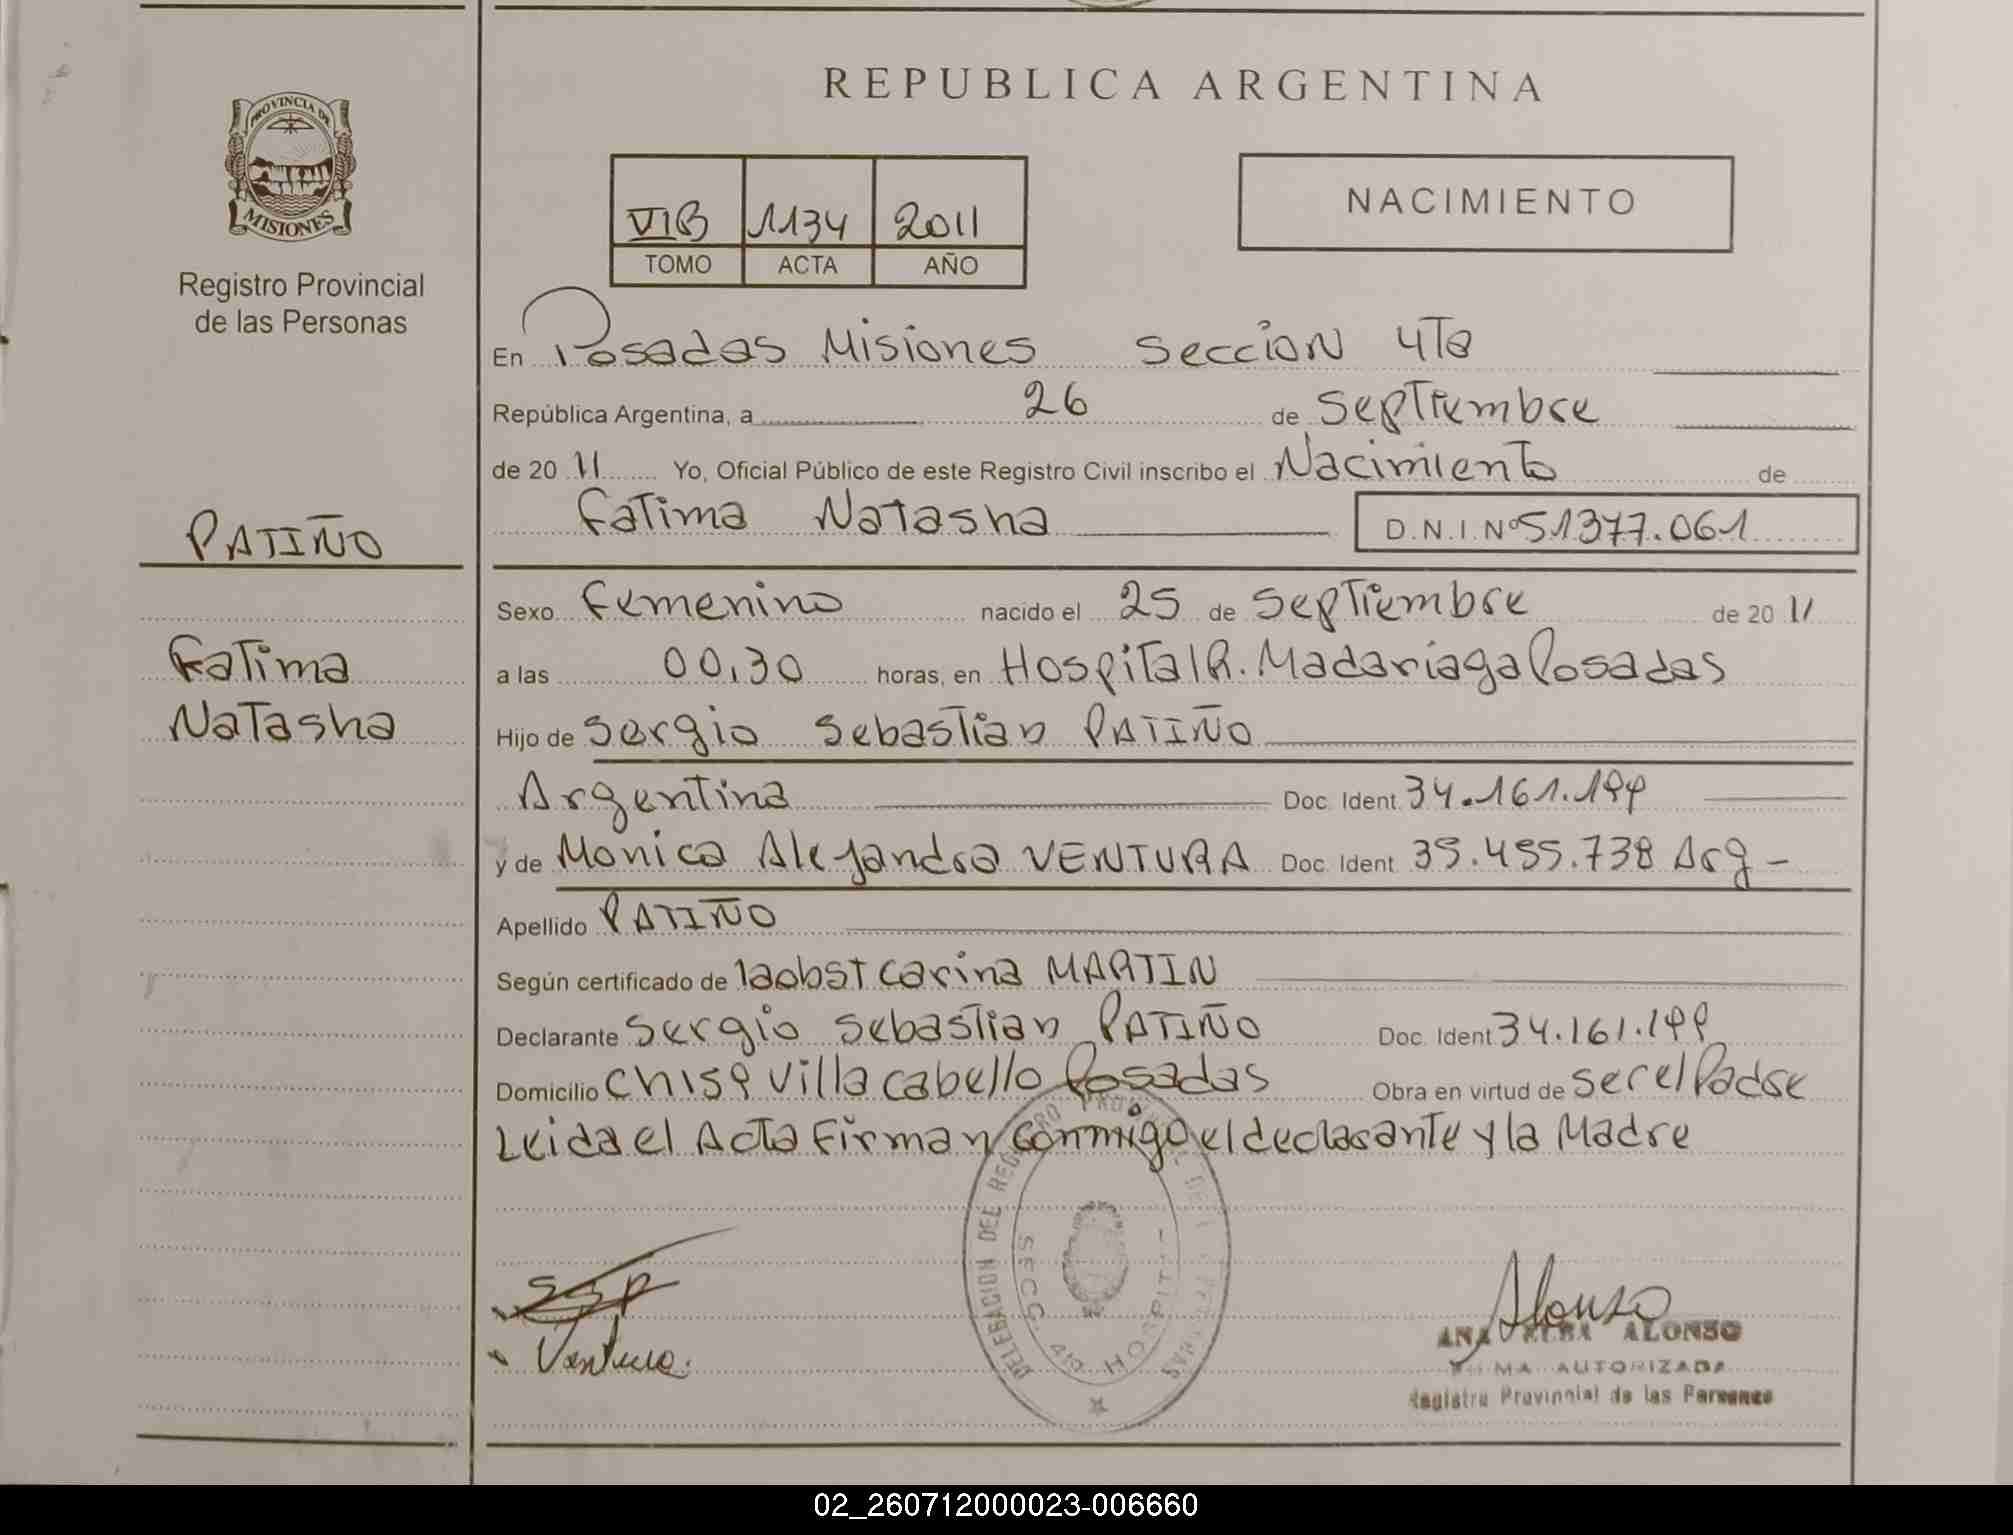 REPUBLICA ARGENTINA
PROVINCIA DE
MISIONES
Registro Provincial
de las Personas
VIB 1134 2011
TOMO ACTA AÑO
NACIMIENTO
En Posadas Misiones Seccion 4Ta
República Argentina, a 26 de Septiembre
de 20 11 Yo, Oficial Público de este Registro Civil inscribo el Nacimiento de
Fatima Natasha D.N.I.Nº 51377.061
PATIÑO
Fatima
Natasha
Sexo Femenino nacido el 25 de Septiembre de 20 11
a las 00,30 horas, en Hospital R. Madariaga Posadas
Hijo de Sergio Sebastian PATIÑO
Argentina Doc. Ident. 34.161.199
y de Monica Alejandra VENTURA Doc. Ident. 35.455.738 Arg -
Apellido PATIÑO
Según certificado de la obst Carina MARTIN
Declarante Sergio Sebastian PATIÑO Doc. Ident 34.161.199
Domicilio Ch159 Villa Cabello Posadas Obra en virtud de ser el Padre
Leida el Acta Firman Conmigo el declarante y la Madre
DELEGACION DEL REGISTRO PROVINCIAL DE LAS PERSONAS
SECC. 4ta HOSPIT
SSP
Ventura.
Alonso
ANA ELBA ALONSO
FIRMA AUTORIZADA
Registro Provincial de las Personas
02_260712000023-006660